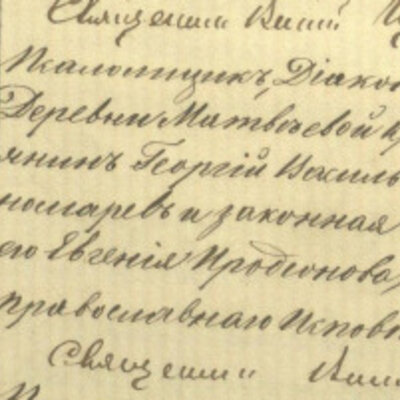 Священник Вит
Псаломщикъ, Діакон
Деревни Матвѣевой кр
янинъ Георгій Василь
номаревъ и законная
его Евгенія Иродіонова,
православнаго исповѣ
Священник Вит